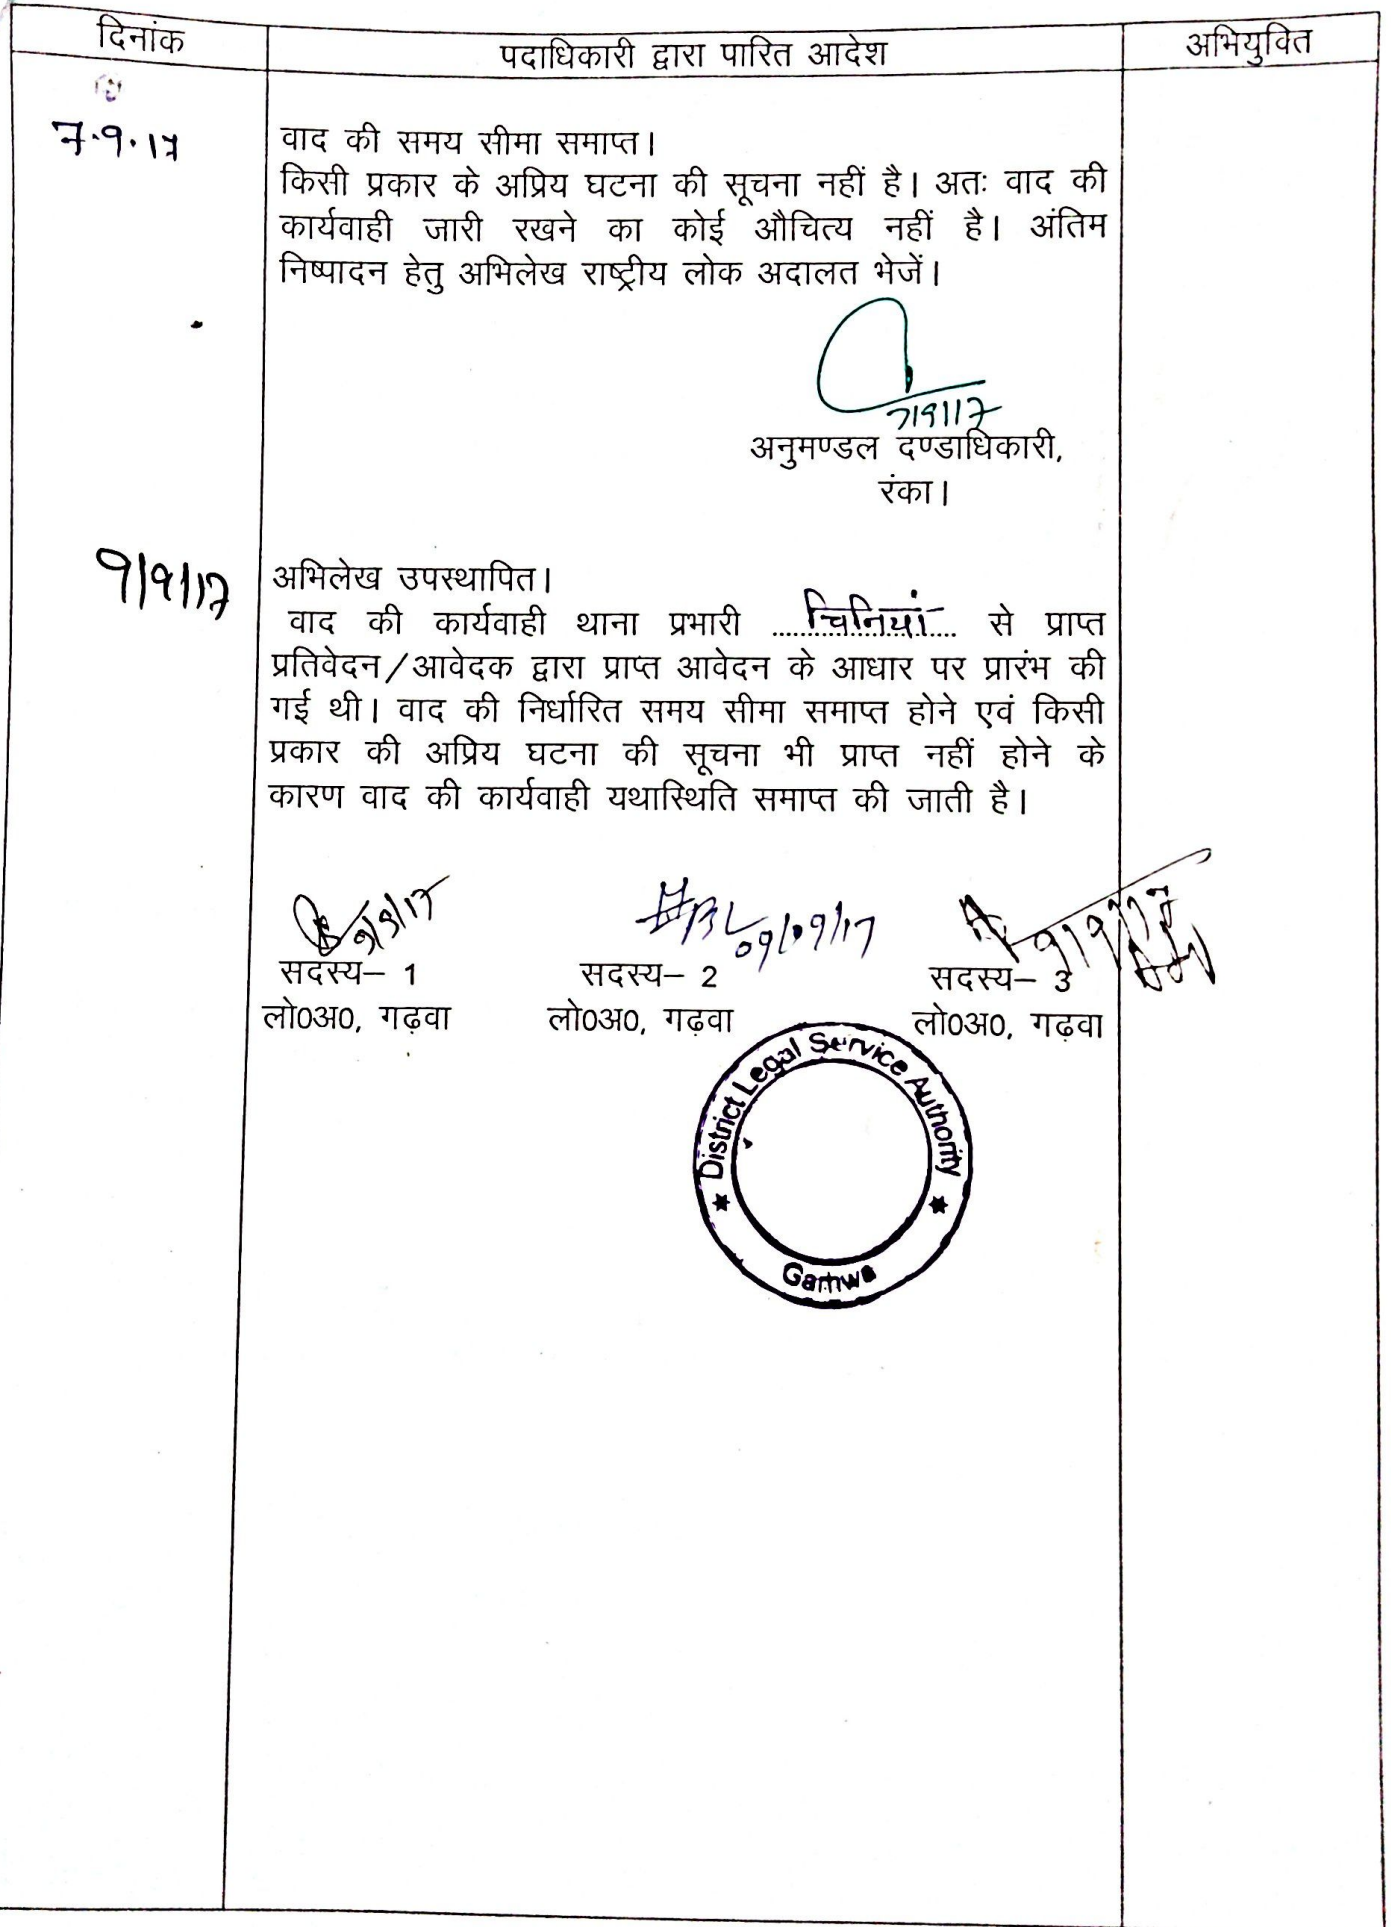 दिनांक
पदाधिकारी द्वारा पारित आदेश
अभियुवित
7.9.17
वाद की समय सीमा समाप्त।
किसी प्रकार के अप्रिय घटना की सूचना नहीं है। अतः वाद की
कार्यवाही जारी रखने का कोई औचित्य नहीं है। अंतिम
निष्पादन हेतु अभिलेख राष्ट्रीय लोक अदालत भेजें।
7/9/17
अनुमण्डल दण्डाधिकारी,
रंका।
9/9/17
अभिलेख उपस्थापित।
वाद की कार्यवाही थाना प्रभारी ...चिनियां... से प्राप्त
प्रतिवेदन/आवेदक द्वारा प्राप्त आवेदन के आधार पर प्रारंभ की
गई थी। वाद की निर्धारित समय सीमा समाप्त होने एवं किसी
प्रकार की अप्रिय घटना की सूचना भी प्राप्त नहीं होने के
कारण वाद की कार्यवाही यथास्थिति समाप्त की जाती है।
9/9/17 09/09/17 9/9/17
सदस्य– 1 सदस्य– 2 सदस्य– 3
लो0अ0, गढ़वा लो0अ0, गढ़वा लो0अ0, गढ़वा
★ District Legal Service Authority ★
Garhwa